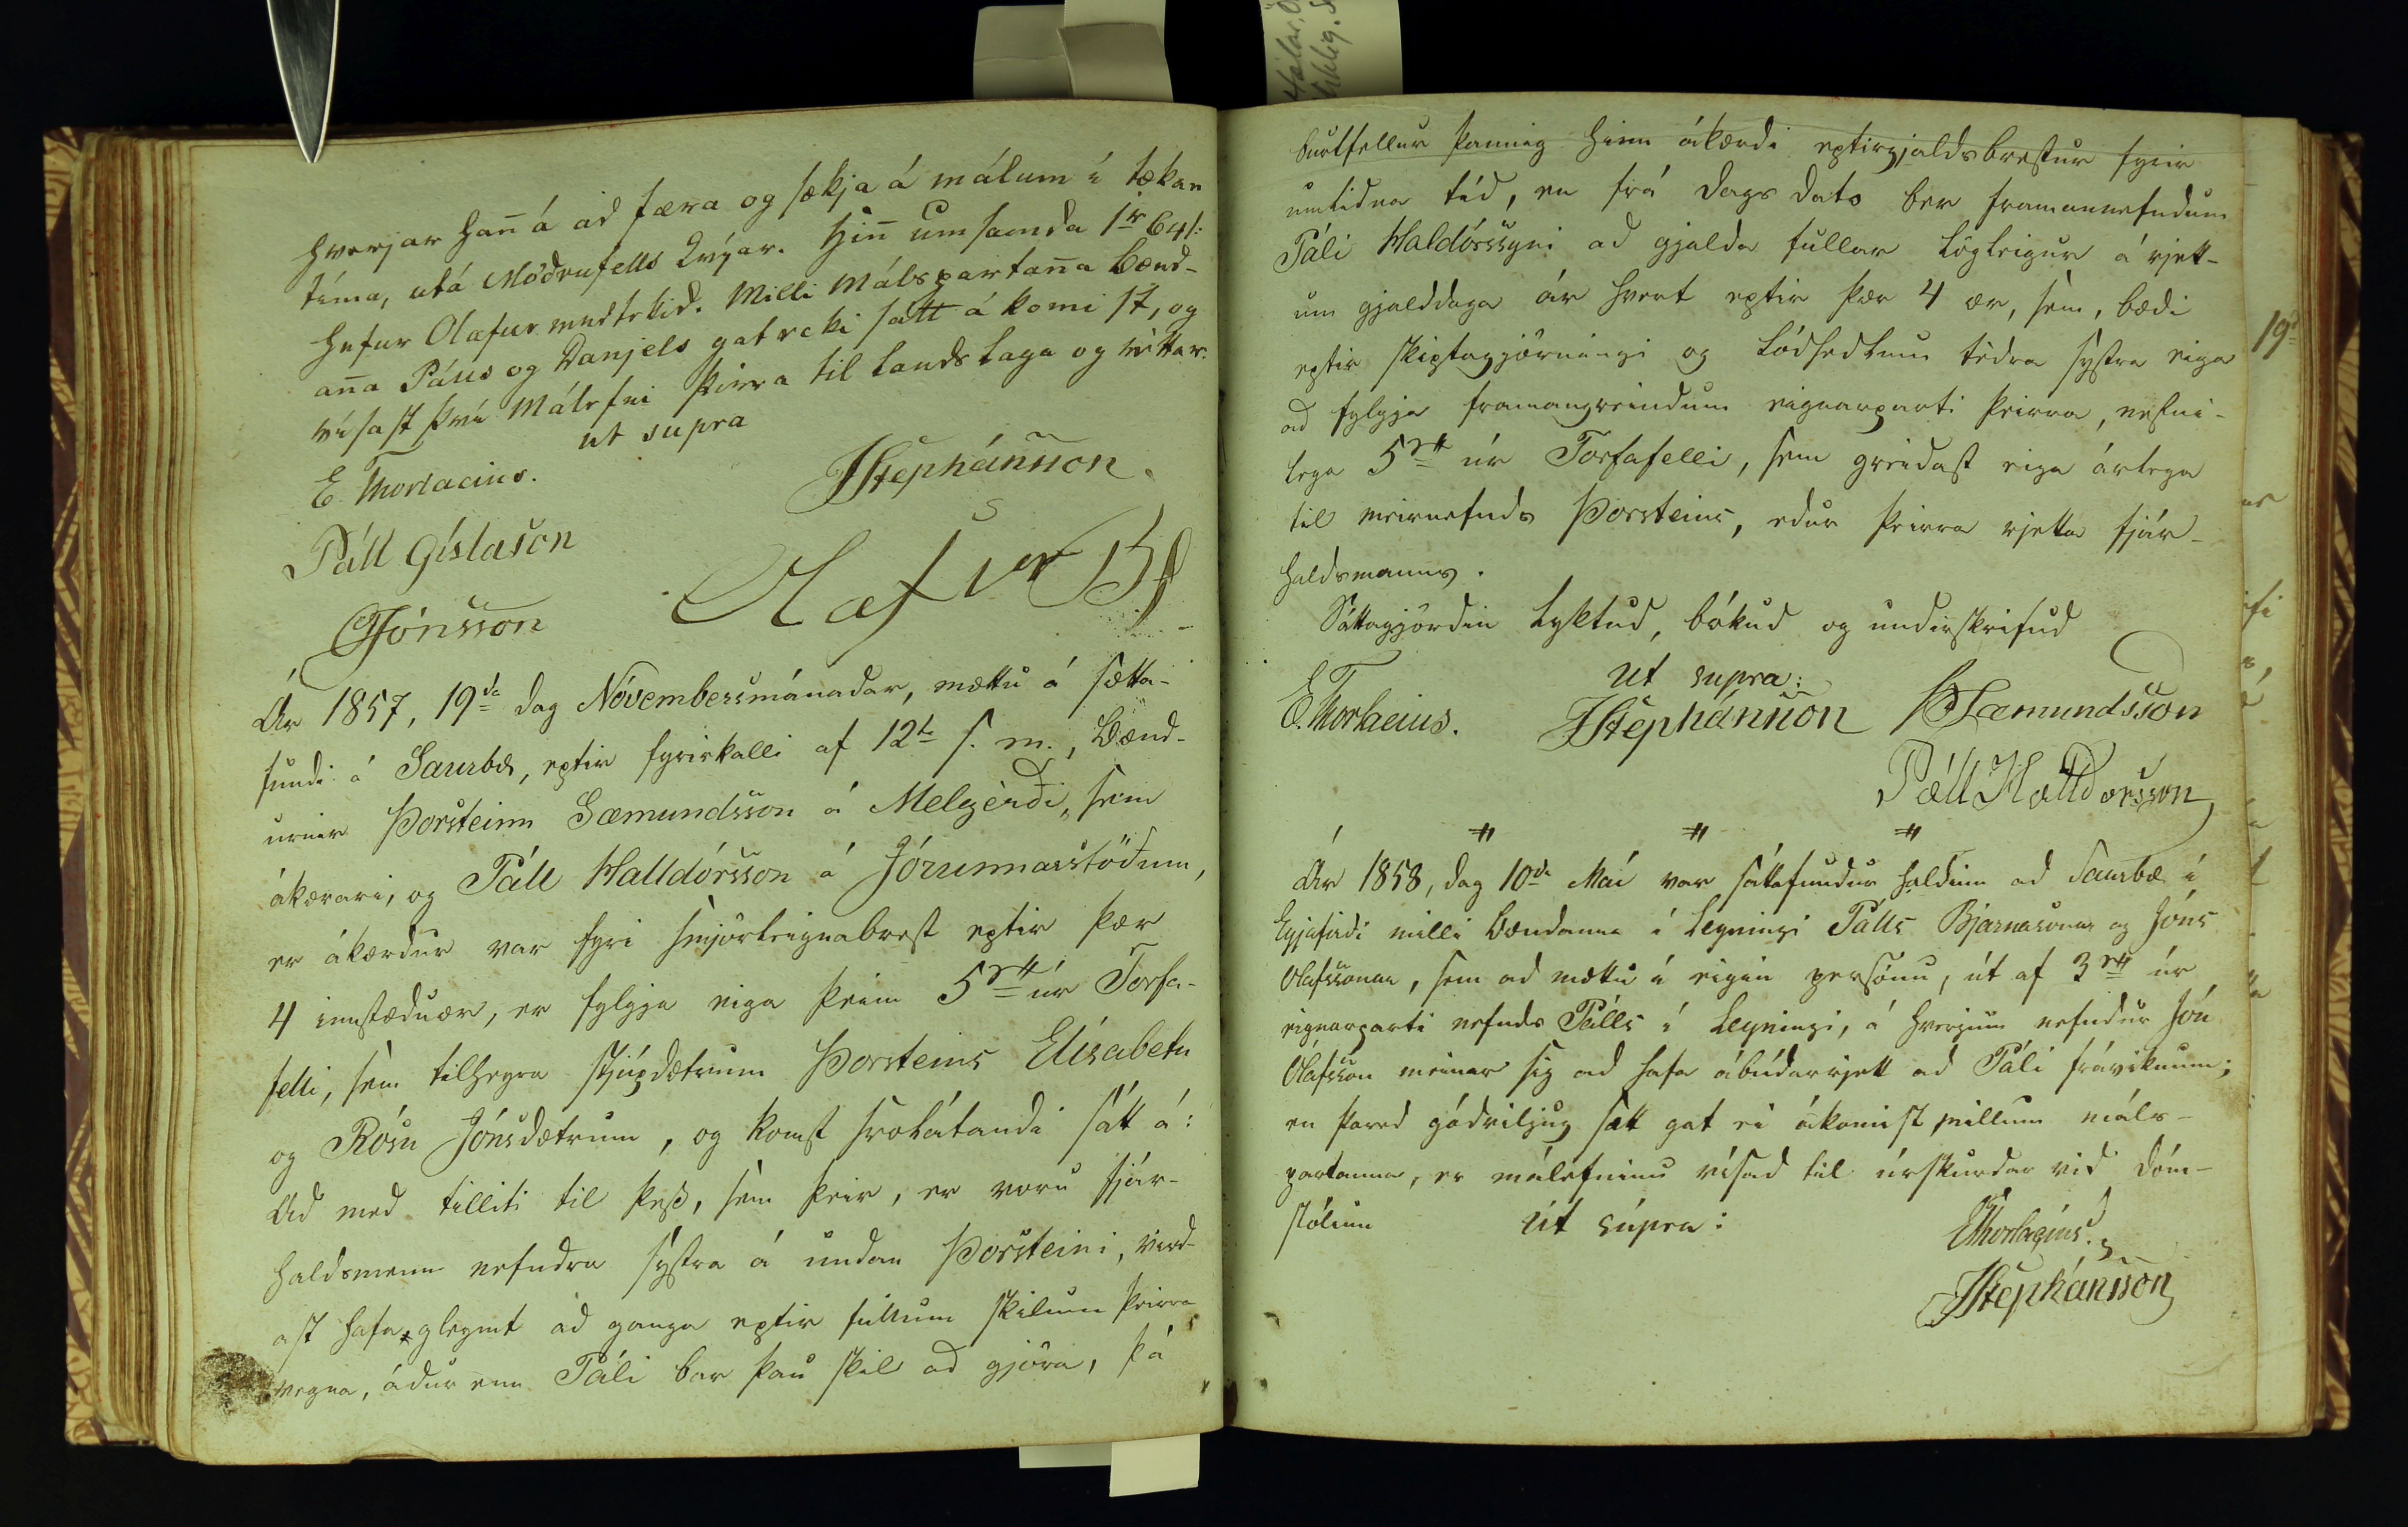 hverjar hañ á ad færa og sækja á málum í tækan
tíma, utá Mödrufells Qvýar. Hiñ umsamda 1r 64s:
hefur Olafur medtekid. Milli Málspartaña Bænd-
aña Páls og Danjels gat ecki satt á komist, og
vísast því Málefni þeirra til lands laga og réttar.
ut supra
E. Thorlacius.
JStephánsson.
Páll Gíslason
Olafur
Jónsson
Ár 1857, 19da dag Nóvembersmánadar, mættu á sætta-
fundi á Saurbæ, eptir fyrirkalli af 12t s. m., Bænd-
urnir Þorsteinn Sæmundsson á Melgérði, sem
ákærari, og Páll Halldórsson á Jórunnarstöðum,
er ákærdur var fyri smjörleignabrest eptir þær
4 innstæduær, er fylgja eiga þeim 5 úr Torfa-
felli, sem tilheyra stjúpdætrum Þorsteins Elísabetu
og Rósu Jónsdætrum, og komst svolátandi sátt á:
Ad med tilliti til þess, sem þeir, er voru fjár-
haldsmenn nefndra systra á undan Þorsteini, vird-
ast hafa gleymt ad ganga eptir fullum skilum þeirra
vegna, ádur enn Páli bar þau skil ad gjöra, þá
burtfellur þannig hinn ákærdi eptirgjaldsbrestur fyrir
umlidna tíd, en frá dags dato ber framannefndum
Páli Haldórssyni ad gjalda fullar lögleigur á rjett-
um gjalddaga ár hvert eptir þær 4 ær, sem, bædi
eptir skiptagjörningi og lódsedlum tédra systra eiga
ad fylgja framangreindum eignarparti þeirra, nefni-
lega 5 úr Torfafelli, sem greidast eiga árlega
til meirnefnds Þorsteins, edur þeirra rjetta fjár-
haldsmanns.
Sáttagjördin lyktud, bókud og undirskrifud
ut supra:
E. Thorlacius.
JStephánsson
ÞSæmundsson
Páll Halldorsson
Ár 1858, dag 10da Mai var sáttafundur haldinn ad Saurbæ í
Eyjafirdi milli bændanna í Leyningi Pálls Bjarnasonar og Jóns
Olafssonar, sem ad mættu í eigin persónu, út af 3 úr
eignarparti nefnds Pálls í Leyningi, á hverjum nefndur Jón
Ólafsson meinar sig ad hafa ábúdarrjett ad Páli fráviknum;
en þared gódviljug sætt gat ei ákomist millum máls-
partanna, er málefninu vísad til úrskurdar vid dóm-
stólinn
út súpra:
EThorlacius.
JStephánsson
19d